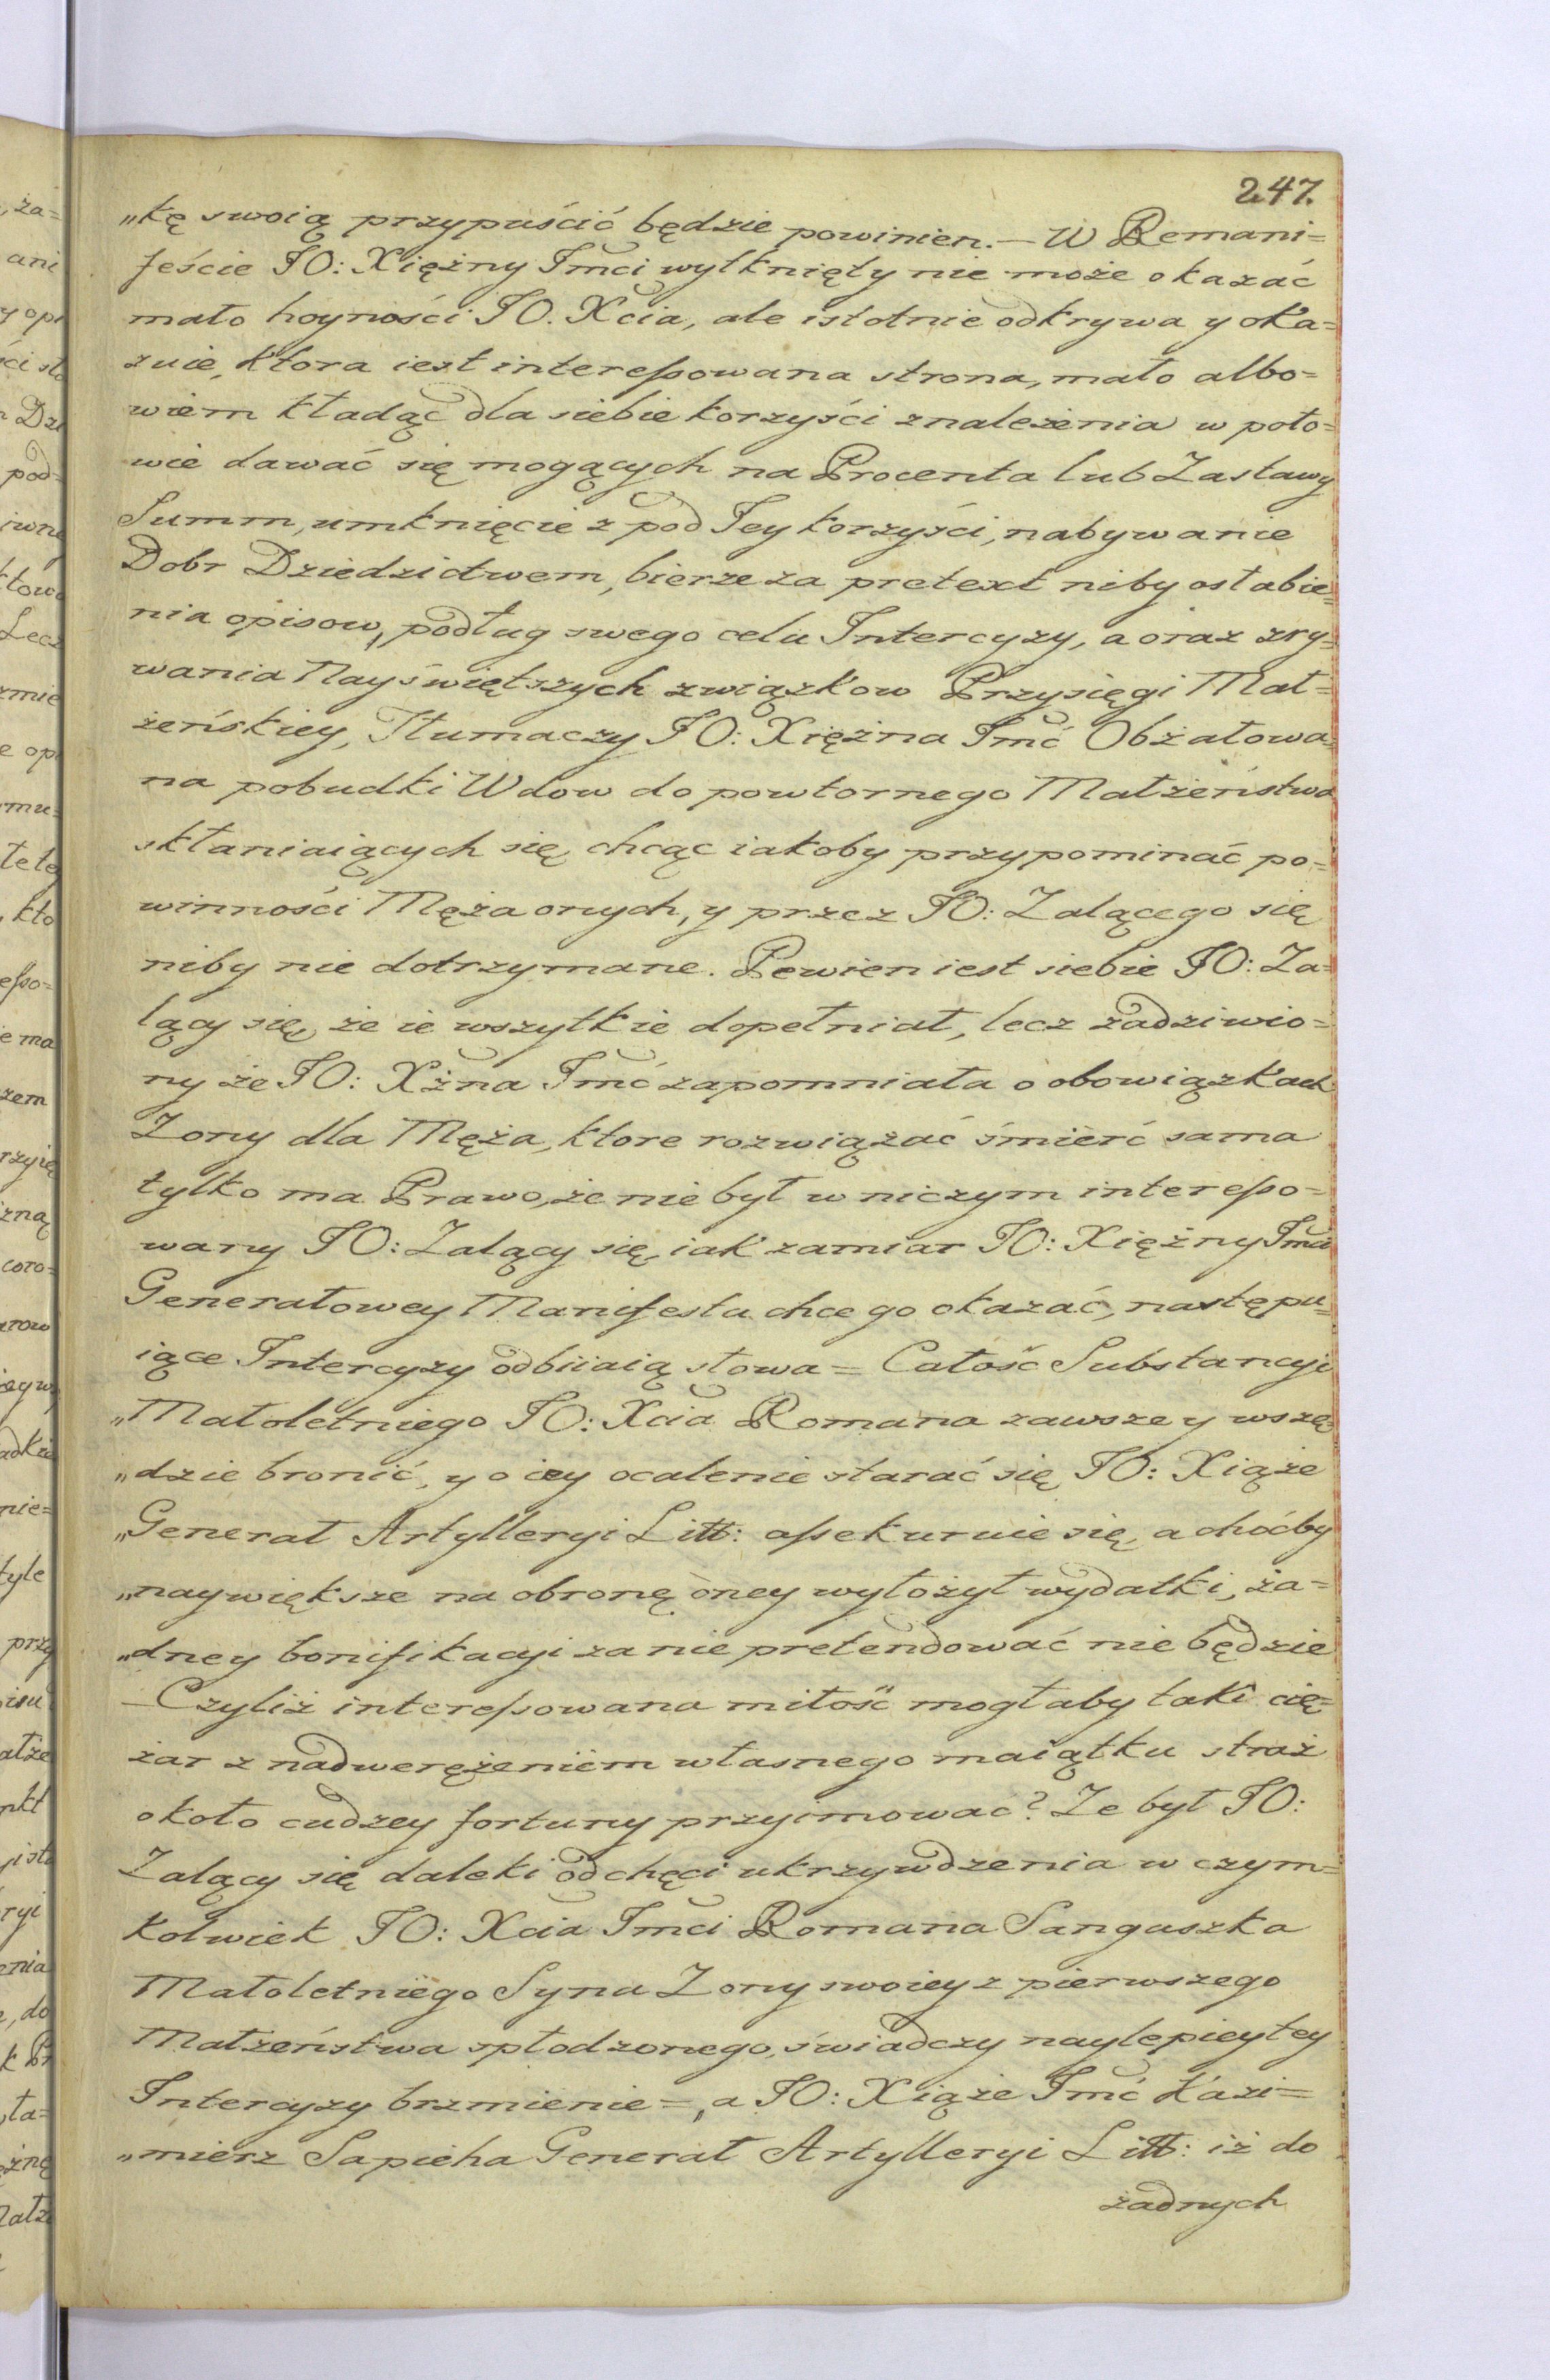 247.
„kę swoią przypuścić będzie powinien. — W Remani=
feście JO: Xiężny Jmci wytknięty nie może okazać
mało hoyności JO. Xcia, ale istotnie odkrywa y oka=
zuie, ktora iest interessowana strona, mało albo=
wiem kładąc dla siebie korzyści znaleźenia w poło=
wie dawać się mogących na Procenta lub Zastawy
Summ, umknięcie z pod Tey korzyści, nabywanie
Dobr Dziedzictwem, bierze za pretext niby osłabie=
nia opisow, podług swego celu Intercyzy, a oraz zry=
wania Nayświętszych związkow Przysięgi Mał=
żeńskiey, Tłumaczy JO: Xiężna Jmć Obżałowa=
na pobudki Wdow do powtornego Małżeństwa
skłaniaiących się, chcąc iakoby przypominać po=
winności Męża onych, y przez JO: Zalącego się
niby nie dotrzymane. Pewien iest siebie JO: Za=
lący się, że ie wszytkie dopełniał, lecz zadziwio=
ny że JO: Xżna Jmć zapomniała o obowiązkach
Zony dla Męża, ktore rozwiązać śmierć sama
tylko ma Prawo, że nie był w niczym interesso=
wany JO: Zalący się, iak zamiar JO: Xiężny Jmci
Generałowey Manifestu chce go okazać, następu=
iące Intercyzy odbiiaią słowa = Całość Substancyi
„Małoletniego JO: Xcia Romana zawsze y wszę=
„dzie bronić, y o iey ocalenie starać się JO: Xiąże
„Generał Artylleryi Litt: assekuruie się, a choćby
„naywiększe na obronę oney wyłożył wydatki, ża=
„dney bonifikacyi za nie pretendować nie będzie
— Czyliż interessowana miłość mogłaby taki cię=
żar z nadwerężeniem własnego maiątku straż
około cudzey fortuny przyimować? Ze był JO:
Zalący się daleki od chęci ukrzywdzenia w czym=
kolwiek JO: Xcia Jmci Romana Sanguszka
Małoletniego Syna Zony swoiey z pierwszego
Małżeństwa spłodzonego, świadczy naylepiey tey
Intercyzy brzmienie =, a JO: Xiąże Jmć Kazi=
„mierz Sapieha Generał Artylleryi Litt: iż do
żadnych